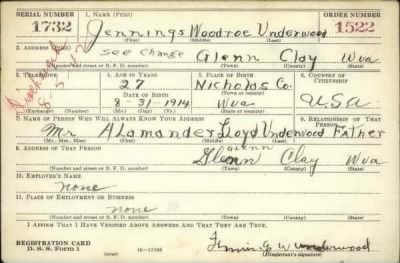 SERIAL NUMBER 1. NAME (Print) ORDER NUMBER
1732 Jennings Woodroe Underwood 1522
(First) (Middle) (Last)
2. ADDRESS (Print)
see change Glenn Clay Wva
(Number and street or R. F. D. number) (Town) (County) (State)
3. TELEPHONE 4. AGE IN YEARS 5. PLACE OF BIRTH 6. COUNTRY OF CITIZENSHIP
27 Nicholas Co.
DATE OF BIRTH (Town or county)
8-31-1914 Wva U.S.A
(Exchange) (Number) (Mo.) (Day) (Yr.) (State or country)
7. NAME OF PERSON WHO WILL ALWAYS KNOW YOUR ADDRESS 8. RELATIONSHIP OF THAT PERSON
Mr. Alamander Lloyd Underwood Father
(Mr., Mrs., Miss) (First) (Middle) (Last)
9. ADDRESS OF THAT PERSON
GLENN
Glenn Clay Wva
(Number and street or R. F. D. number) (Town) (County) (State)
10. EMPLOYER'S NAME
none
11. PLACE OF EMPLOYMENT OR BUSINESS
none
(Number and street or R. F. D. number) (Town) (County) (State)
I AFFIRM THAT I HAVE VERIFIED ABOVE ANSWERS AND THAT THEY ARE TRUE.
REGISTRATION CARD
D. S. S. Form 1 16-17105 (Registrant's signature)